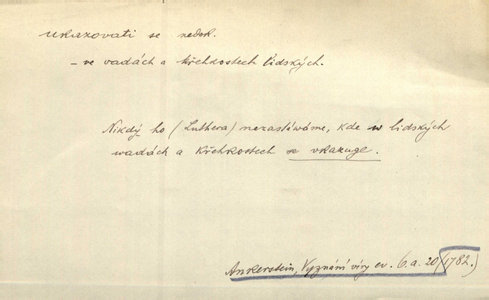 ukazovati se nedok.
– ve vadách a křehkostech lidských.
Nikdý ho (Luthera) nezastáwáme, kde w lidských
wadách a křehkostech se vkazuge.
Ankerstein, Vyznání víry ev. 6.a.20 (1782.)